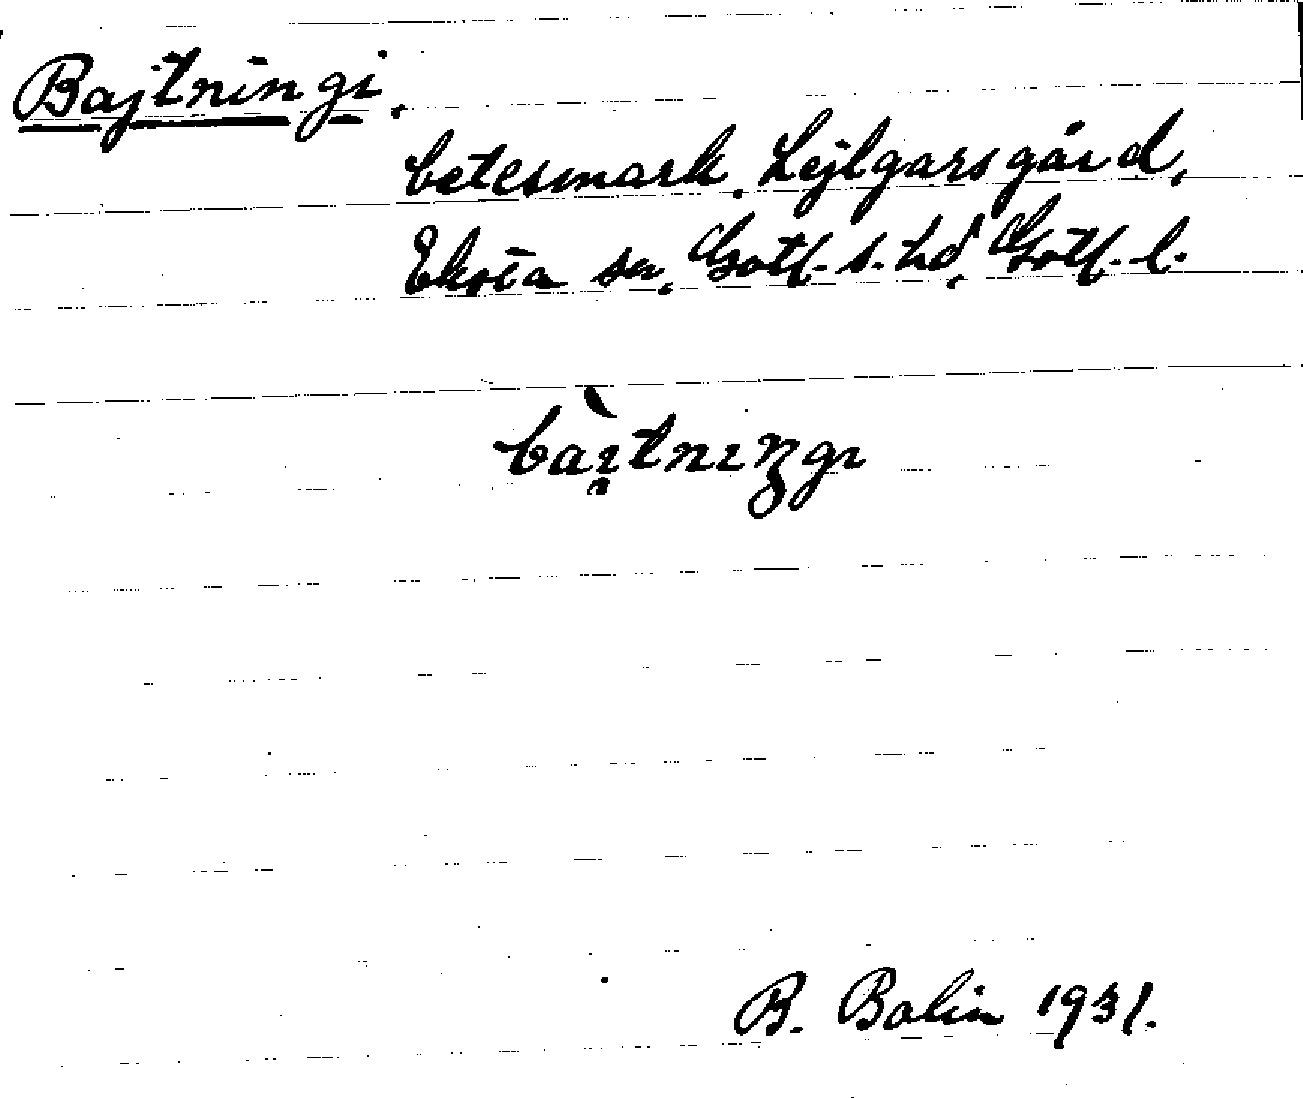 Bajtningi.
betesmark. Lejlgarsgård,
Eksta sn. Gotl. s. hd, Gotl. l.
bàịtnıŋgı
B. Bolin 1931.